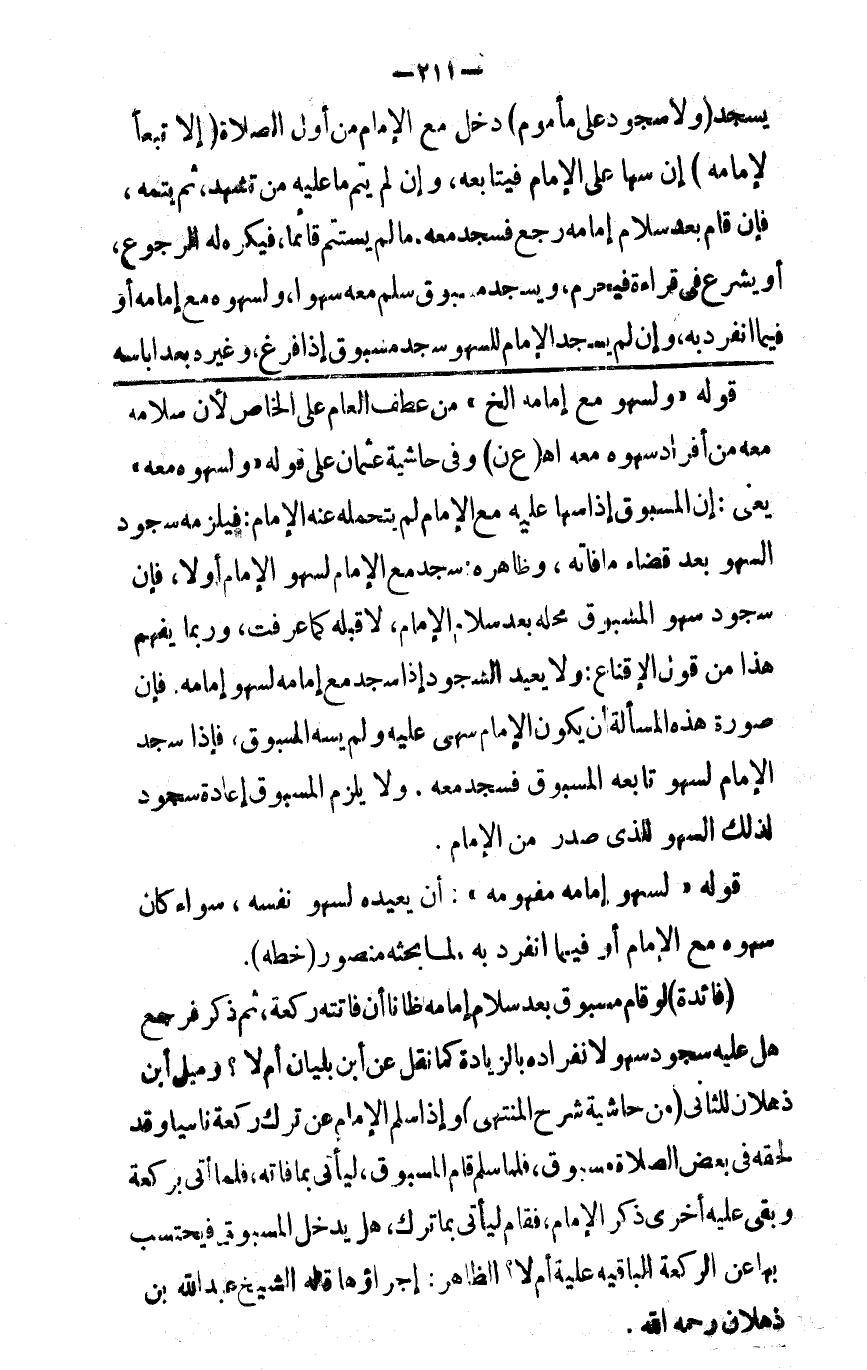 — ٢١١ —
يسجد (ولا سجود على مأموم) دخل مع الإمام من أول الصلاة (إلا تبعاً
لإمامه) إن سها على الإمام فيتابعه، وإن لم يتم ما عليه من تشهد، ثم يتمه،
فإن قام بعد سلام إمامه رجع فسجد معه. ما لم يستتم قائما، فيكره له الرجوع،
أو يشرع فى قراءة فيحرم، ويسجد مسبوق سلم معه سهوا، ولسهوه مع إمامه أو
فيما انفرد به، وإن لم يسجد الإمام للسهو سجد مسبوق إذا فرغ، وغيره بعد اباسه
قوله « ولسهو مع إمامه الخ » من عطف العام على الخاص لأن سلامه
معه من أفراد سهوه معه اهـ (ع ن) وفى حاشية عثمان على قوله « ولسهوه معه »
يعنى : إن المسبوق إذا سها عليه مع الإمام لم يتحمله عنه الإمام : فيلزمه سجود
السهو بعد قضاء مافاته ، وظاهره : سجد مع الإمام لسهو الإمام أولا، فإن
سجود سهو المسبوق محله بعد سلام الإمام، لا قبله كما عرفت، وربما يفهم
هذا من قول الإقناع : ولا يعيد السجود إذا سجد مع إمامه لسهو إمامه. فإن
صورة هذه المسألة أن يكون الإمام سهى عليه ولم يسه المسبوق، فإذا سجد
الإمام لسهو تابعه المسبوق فسجد معه . ولا يلزم المسبوق إعادة سجود
لذلك السهو للذى صدر من الإمام .
قوله « لسهو إمامه مفهومه » : أن يعيده لسهو نفسه ، سواء كان
سهوه مع الإمام أو فيما انفرد به . لما بحثه منصور (خطه).
(فائدة) لو قام مسبوق بعد سلام إمامه ظانا أن فاتته ركعة، ثم ذكر فرجع
هل عليه سجود سهو لانفراده بالزيادة كما نقل عن أبن بليان أم لا ؟ وميل أبن
ذهلان للثانى (من حاشية شرح المنتهى) وإذا سلم الإمام عن ترك ركعة ناسيا وقد
لحقه فى بعض الصلاة مسبوق، فلما سلم قام المسبوق، ليأتى بما فاته، فلما أتى بركعة
وبقى عليه أخرى ذكر الإمام، فقام ليأتى بما ترك، هل يدخل المسبوق فيحتسب
بها عن الركعة الباقيه علية أم لا ؟ الظاهر : إجراؤها قاله الشيخ عبدالله بن
ذهلان رحمه الله .